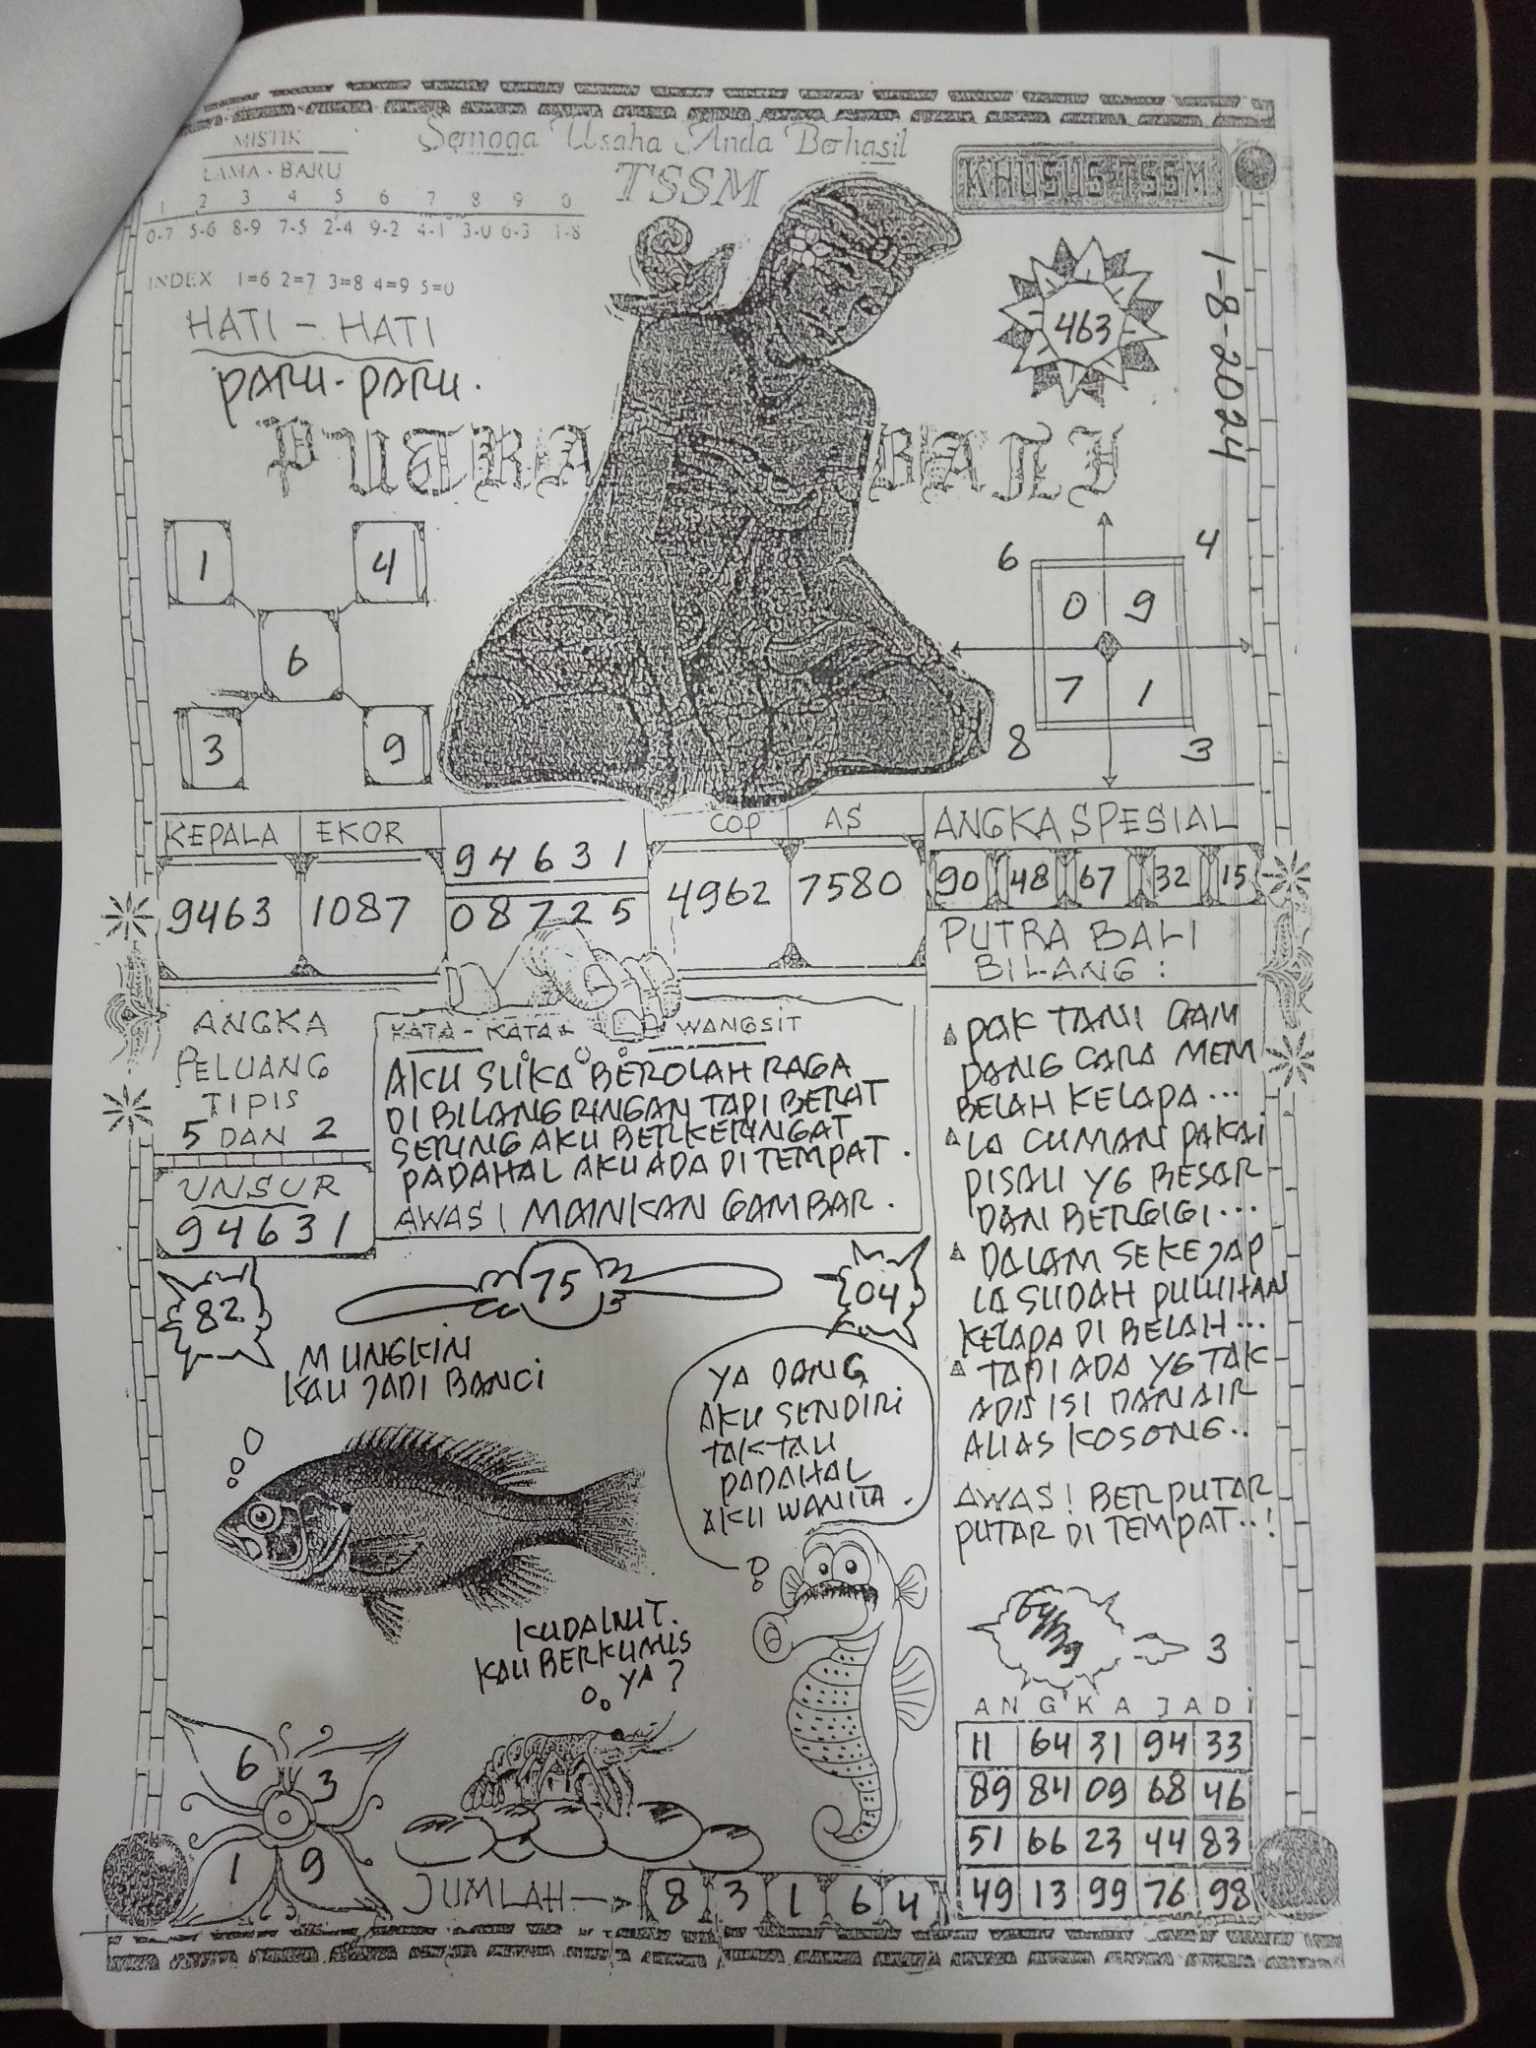 MISTIK
LAMA - BARU
1 2 3 4 5 6 7 8 9 0
0-7 5-6 8-9 7-5 2-4 9-2 4-1 3-0 6-3 1-8
INDEX 1=6 2=7 3=8 4=9 5=0
Semoga Usaha Anda Berhasil
TSSM
KHUSUS TSSM
1-8-2024
463
HATI - HATI
PARU-PARU.
PUTRA BALI
1 4
6
3 9
6 4
0 9
7 1
8 3
KEPALA EKOR
9463 1087
94631
08725
COP AS
4962 7580
ANGKA SPESIAL
90 48 67 32 15
ANGKA
PELUANG
TIPIS
5 DAN 2
UNSUR
94631
KATA - KATA WANGSIT
AKU SUKA BEROLAH RAGA
DI BILANG RINGAN TAPI BERAT
SERING AKU BERKERINGAT
PADAHAL AKU ADA DI TEMPAT.
AWAS! MAINKAN GAMBAR.
PUTRA BALI
BILANG :
PAK TANI GAM
PANG CARA MEM
BELAH KELAPA...
IA CUMAN PAKAI
PISAU YG BESAR
DAN BERGIGI...
DALAM SEKEJAP
IA SUDAH PULUHAN
KELAPA DI BELAH...
TAPI ADA YG TAK
ADA ISI DAN AIR
ALIAS KOSONG..
AWAS! BERPUTAR
PUTAR DI TEMPAT..!
82
75
04
MUNGKIN
KAU JADI BANCI
YA DANG
AKU SENDIRI
TAK TAU
PADAHAL
AKU WANITA.
KUDA LAUT.
KAU BERKUMIS
YA?
3
6 3
1 9
JUMLAH
8 3 1 6 4
ANGKA JADI
11 64 31 94 33
89 84 09 68 46
51 66 23 44 83
49 13 99 76 98